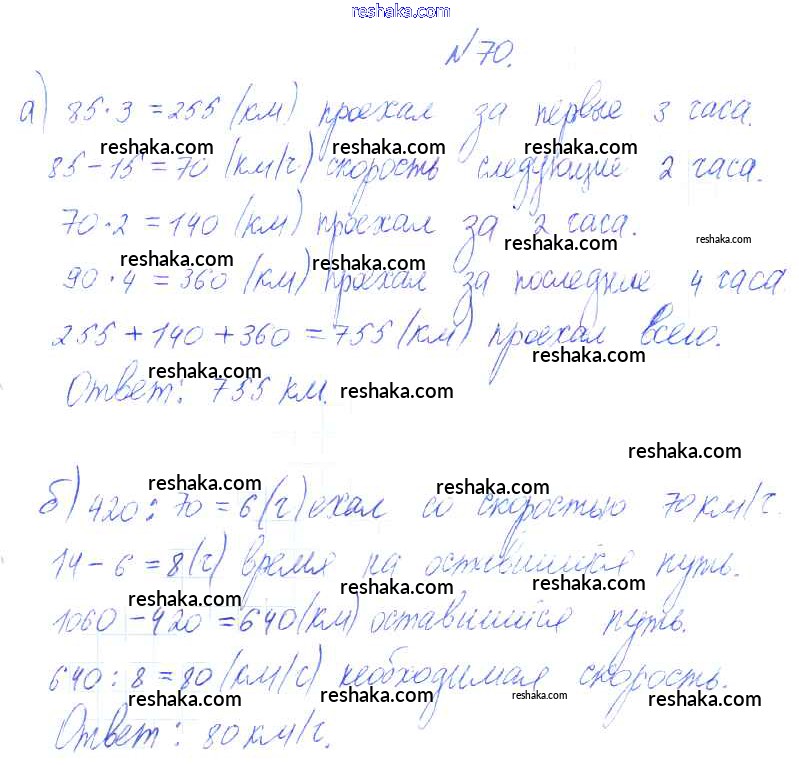 reshaka.com
№70.
а) 85·3=255 (км) проехал за первые 3 часа.
reshaka.com reshaka.com reshaka.com
85-15=70 (км/ч) скорость следующие 2 часа.
70·2=140 (км) проехал за 2 часа.
reshaka.com reshaka.com reshaka.com reshaka.com
90·4=360 (км) проехал за последние 4 часа.
255+140+360=755 (км) проехал всего.
reshaka.com reshaka.com
Ответ: 755 км.
reshaka.com
reshaka.com
reshaka.com reshaka.com
б) 420:70=6 (ч) ехал со скоростью 70 км/ч.
14-6=8 (ч) время на оставшийся путь.
reshaka.com reshaka.com reshaka.com
1060-420=640 (км) оставшийся путь.
640:8=80 (км/с) необходимая скорость.
reshaka.com reshaka.com reshaka.com reshaka.com
Ответ: 80 км/ч.